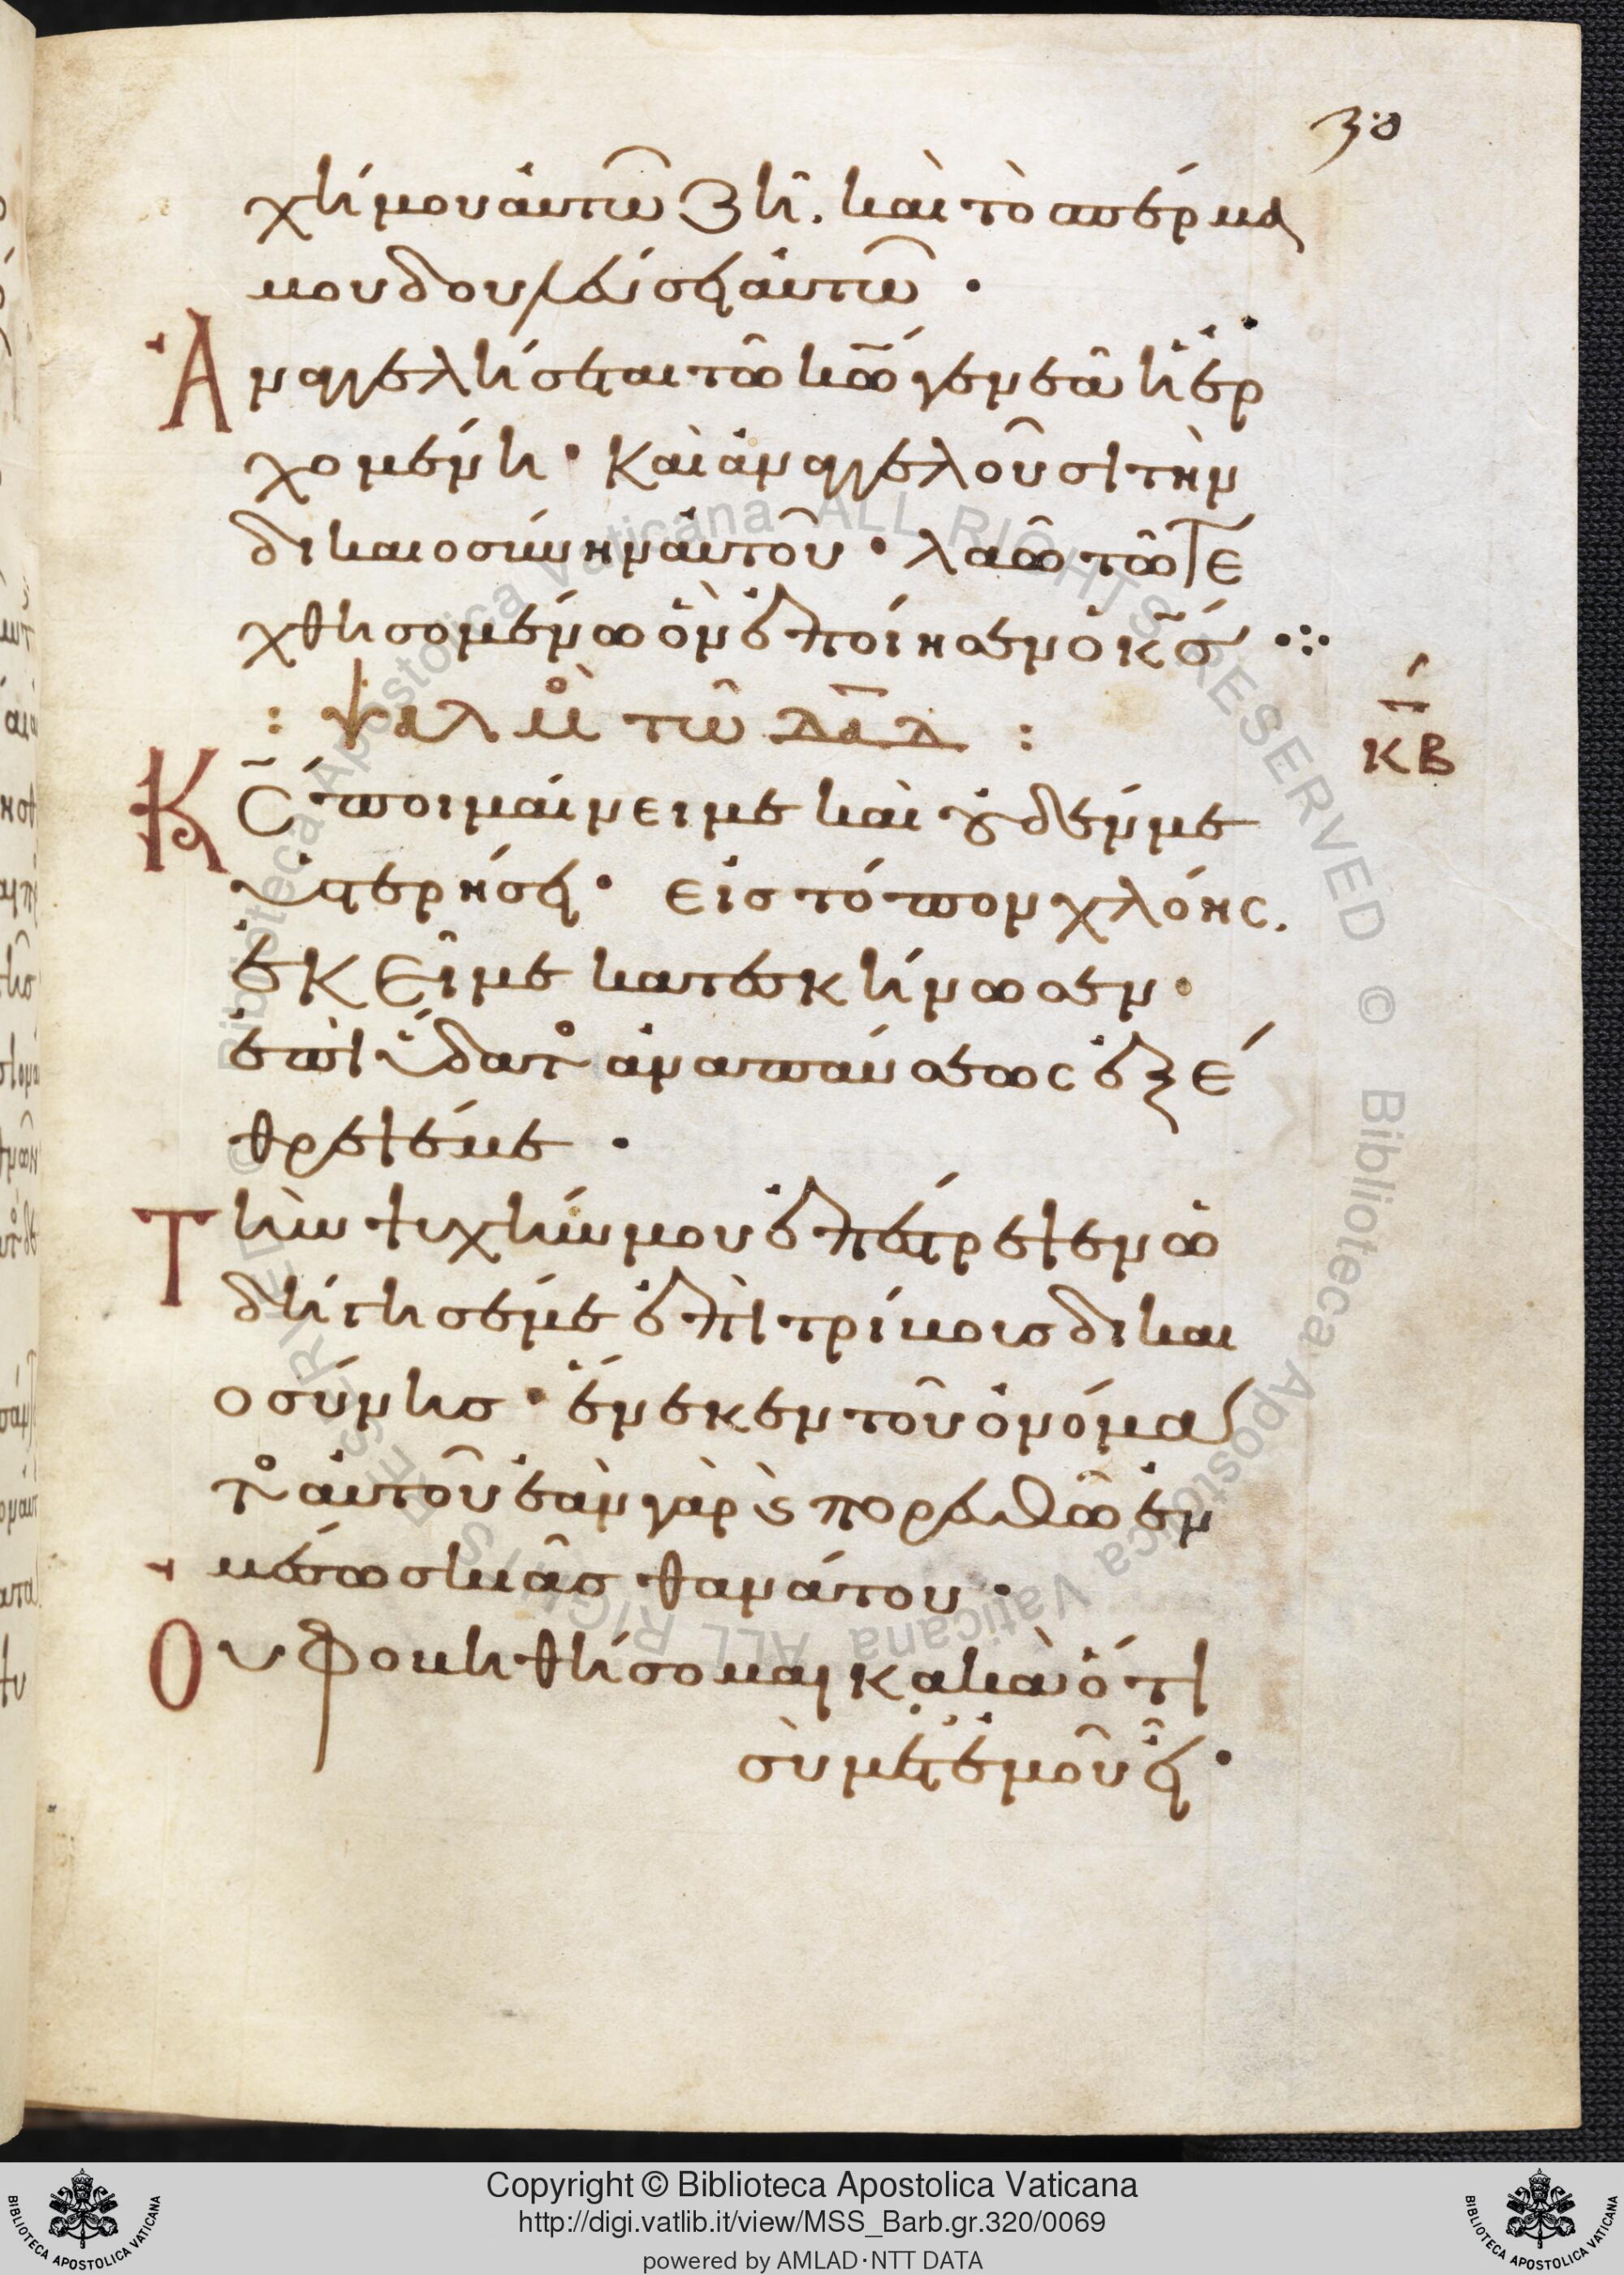 30
χή μου αὐτῶ ζῆ. καὶ τὸ σπέρμα
μου δουλεύσει αὐτῶ ·
Ἀναγγελήσεται τῶ κ͞ω γενεὰ ἡ ἐρ
χομένη · καὶ ἀναγγελοῦσι τὴν
δικαιοσύνην αὐτοῦ · λαῶ τῶ τε
χθησομένω ὃν ἐποίησεν ὁ κ͞σ ·:·
: ψαλμὸ τῶ δ͞α͞δ :
κ͞β
Κ͞Ϲ ποιμαίνει με καὶ οὐδέν με
ὑστερήσει · εἰς τόπον χλόης.
ἐκεῖ με κατεσκήνωσεν ·
ἐπὶ ὕδατο ἀναπαύσεως ἐξέ
θρεψέ με ·
Τὴν ψυχήν μου ἐπέστρεψεν ὡ
δήγησέ με ἐπὶ τρίβοις δικαι
οσύνησ · ἕνεκεν τοῦ ὀνόματος
αὐτοῦ ἐὰν γὰρ ϗ πορευθῶ ἐν
μέσω σκιᾶσ θανάτου ·
Οὐ φοβηθήσομαι κακὰ ὅτι
σὺ μετ' ἐμοῦ εἶ ·
Copyright © Biblioteca Apostolica Vaticana
http://digi.vatlib.it/view/MSS_Barb.gr.320/0069
powered by AMLAD·NTT DATA
BIBLIOTECA APOSTOLICA VATICANA
BIBLIOTECA APOSTOLICA VATICANA
Biblioteca Apostolica Vaticana ALL RIGHTS RESERVED © Biblioteca Apostolica Vaticana ALL RIGHTS RESERVED ©